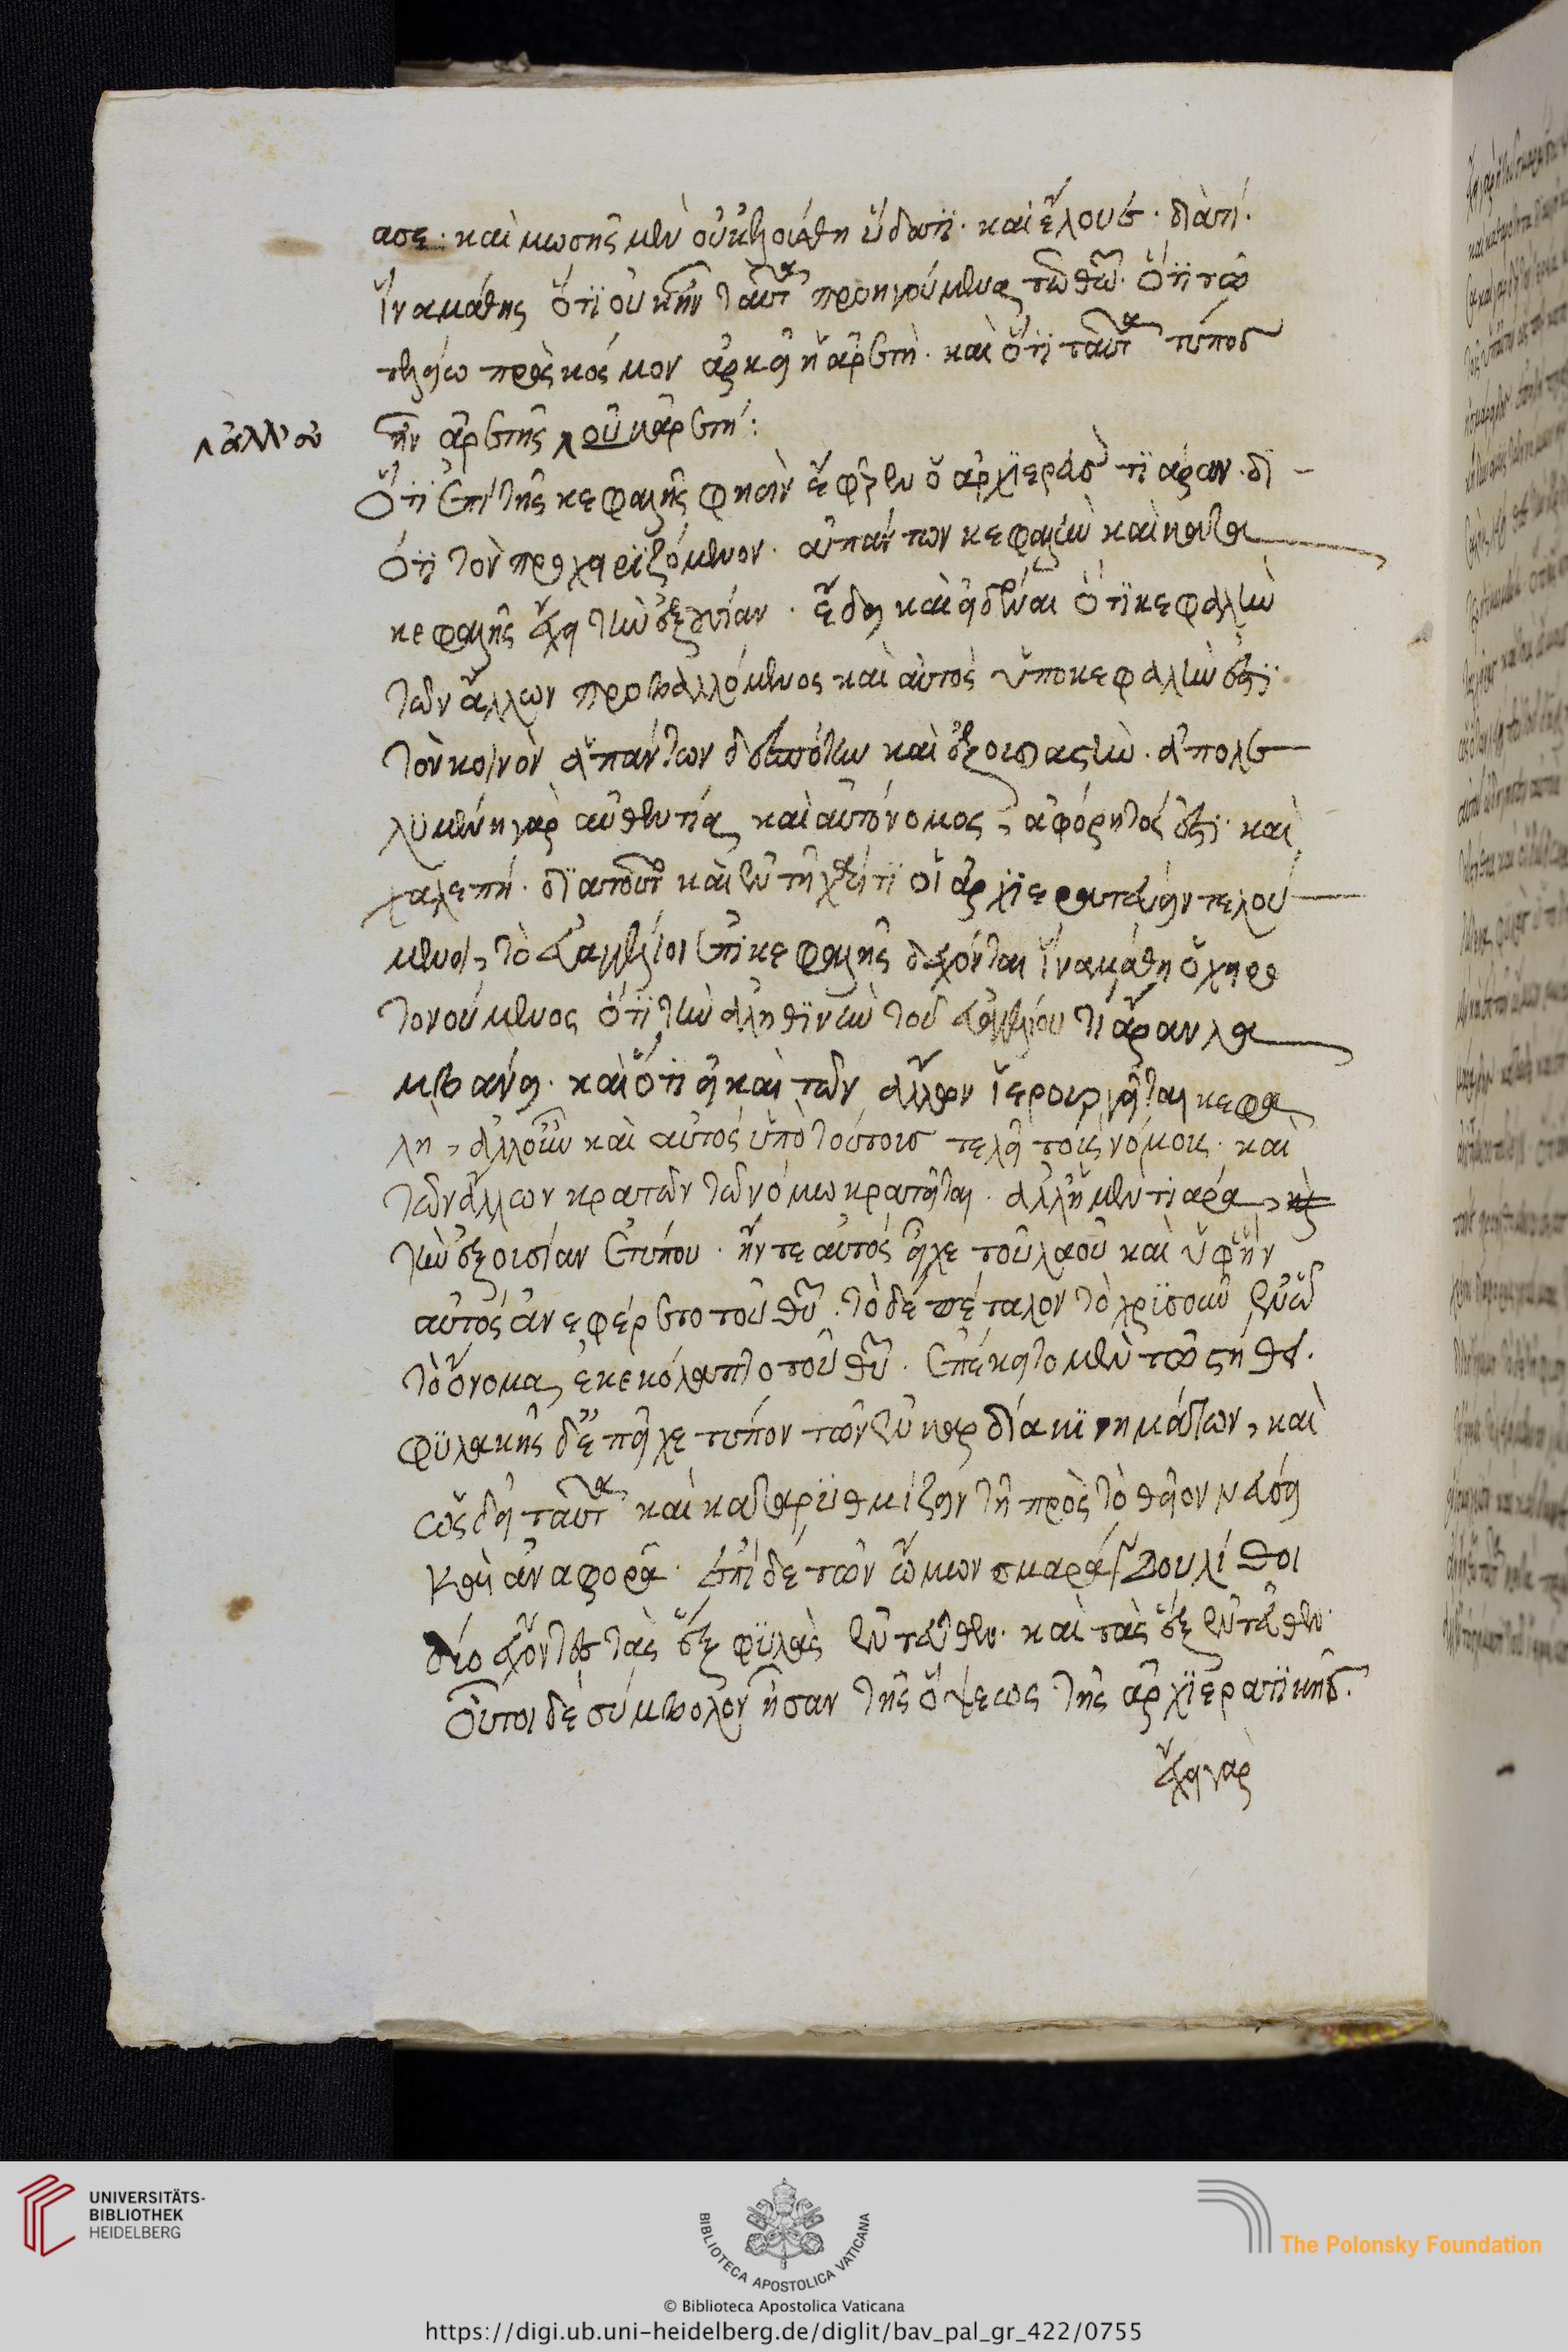 ασε· καὶ μωσῆς μὲν οὐκ ἐλούσθη ὕδατϊ· καὶ ἔλουσε· διὰτί·
ἵνα μάθης ὅτϊ οὐκ ἦν ταῦτα προηγούμενα τῶ θῶ· ὅτι τῶ
τελείω πρὸς κόσμον ἀρκεῖ ἡ ἀρετὴ· καὶ ὅτϊ ταῦτα τύπος
ἦν ἀρετῆς οὐκ ἀρετή:
ἀλλ' οὐ
Ὅτϊ ἐπὶ τῆς κεφαλῆς φησὶν ἔφερεν ὁ ἀρχϊερεὺς τϊάραν· δϊ
ότϊ τὸν προχειρϊζόμενον· ἁπάντων κεφαλὴν καὶ κατα
κεφαλῆς ἔχει τὴν ἐξουσίαν· ἔδει καὶ εἰδέναι ὅτϊ κεφαλὴν
τῶν ἄλλων προβαλλόμενος καὶ αὐτὸς ὑπὸ κεφαλὴν ἐστϊ·
τὸν κοινὸν ἁπάντων δεσπότην καὶ ἐξουσιαστὴν· ἀπολε
λϋμένη γὰρ αὐθεντία καὶ αὐτόνομος, ἀφόρητός ἐστϊ· καὶ
χαλεπή· δϊατοῦτο καὶ ἐν τῆ χάριτϊ οἱ ἀρχϊερατεύειν τελού
μενοι, τὸ εὐαγγέλιον ἐπὶ κεφαλῆς δέχονται ἵνα μάθη ὁ χειρο
τονούμενος ὅτϊ τὴν ἀληθϊνὴν τοῦ εὐαγγελίου τιάραν λα
μβάνει· καὶ ὅτι εἰ καὶ τῶν ἄλλων ἱερουργεῖται κεφα
λὴ, ἀλλ' οὖν καὶ αὐτὸς ὑπὸ τούτοις τελεῖ τοῖς νόμοις· καὶ
τῶν ἄλλων κρατῶν τῶ νόμω κρατεῖται· ἀλλ' ἡ μὲν τιάρα,
τὴν ἐξουσίαν ἐτύπου· ἥν τε αὐτὸς εἶχε τοῦ λαοῦ καὶ ὑφ' ἣν
αὐτὸς ἀνεφέρετο τοῦ θῦ· τὸ δὲ πέταλον τὸ χρϊσοῦν ἐν ᾧ
τὸ ὄνομα ἐκεκόλαπτο τοῦ θῦ· ἐπέκειτο μὲν τῶ στήθει·
φϋλακῆς δ' ἐπεῖχε τύπον τῶν ἐν καρδία κϊνημάτων, καὶ
ὡς δεῖ ταῦτα καὶ καταρϋθμίζειν τῆ πρὸς τὸ θεῖον νεύσει
καὶ ἀναφορᾶ· ἐπὶ δὲ τῶν ὤμων σμαράγδου λίθοι
δύο ἔχοντες τὰς ἓξ φϋλὰς ἐντεῦθεν· καὶ τὰς ἓξ ἐντεῦθεν·
Οὗτοι δὲ σύμβολον ἦσαν τῆς ὄψεως τῆς ἀρχϊερατϊκῆς·
ἔχει γὰρ
UNIVERSITÄTS-
BIBLIOTHEK
HEIDELBERG
BIBLIOTECA APOSTOLICA VATICANA
The Polonsky Foundation
© Biblioteca Apostolica Vaticana
https://digi.ub.uni-heidelberg.de/diglit/bav_pal_gr_422/0755